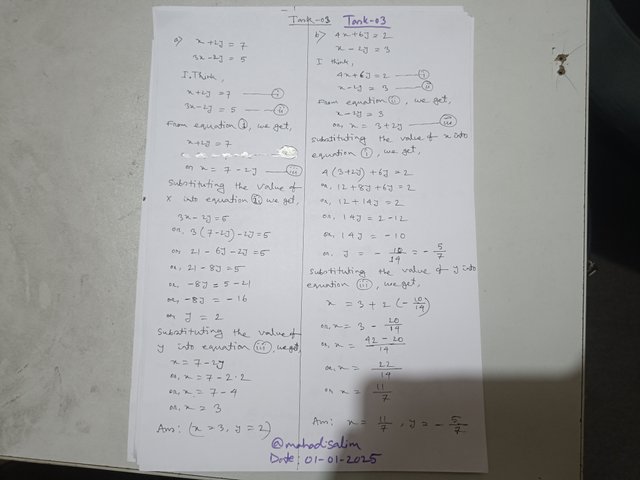 Task-03 Task-03
a) x+2y = 7
3x-2y = 5
I Think,
x+2y = 7 —— (i)
3x-2y = 5 —— (ii)
From equation (i), we get,
x+2y = 7
or x = 7 - 2y —— (iii)
Substituting the value of
x into equation (ii), we get,
3x-2y = 5
or, 3(7-2y)-2y=5
or, 21 - 6y - 2y = 5
or, 21 - 8y = 5
or, -8y = 5-21
or, -8y = -16
or y = 2
Substituting the value of
y into equation (iii), we get,
x = 7-2y
or, x = 7-2·2
or, x = 7-4
or, x = 3
Ans: (x = 3, y = 2)
b) 4x+6y = 2
x - 2y = 3
I think,
4x+6y = 2 —— (i)
x-2y = 3 —— (ii)
From equation (ii), we get,
x-2y = 3
or, x = 3+2y —— (iii)
Substituting the value of x into
equation (i), we get,
4(3+2y) +6y = 2
or, 12+8y+6y = 2
or, 12+14y = 2
or, 14y = 2-12
or, 14y = -10
or, y = - 10/14 = - 5/7
Substituting the value of y into
equation (iii), we get,
x = 3 + 2 (- 10/14)
or, x = 3 - 20/14
or, x = 42 - 20/14
or, x = 22/14
or x = 11/7
Ans: x = 11/7, y = - 5/7
@mahadisalim
Date: 01-01-2025